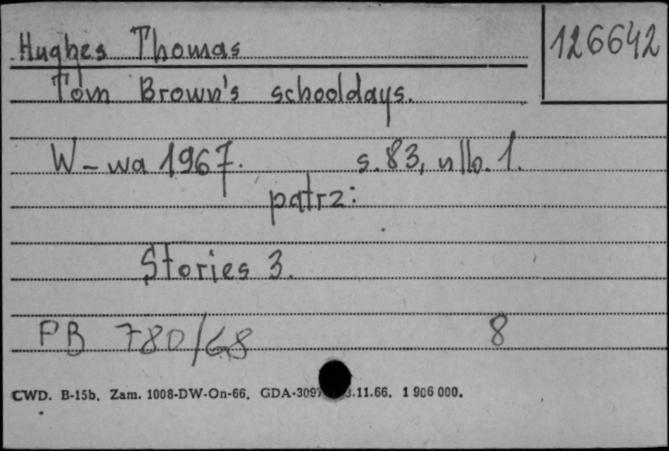 Hughes Thomas
126642
Tom Brown's schooldays.
W-wa 1967. s. 83, nlb. 1.
patrz:
Stories 3.
PB 780/68 8
CWD. B-15b. Zam. 1008-DW-On-66. GDA-309 .11.66. 1 906 000.